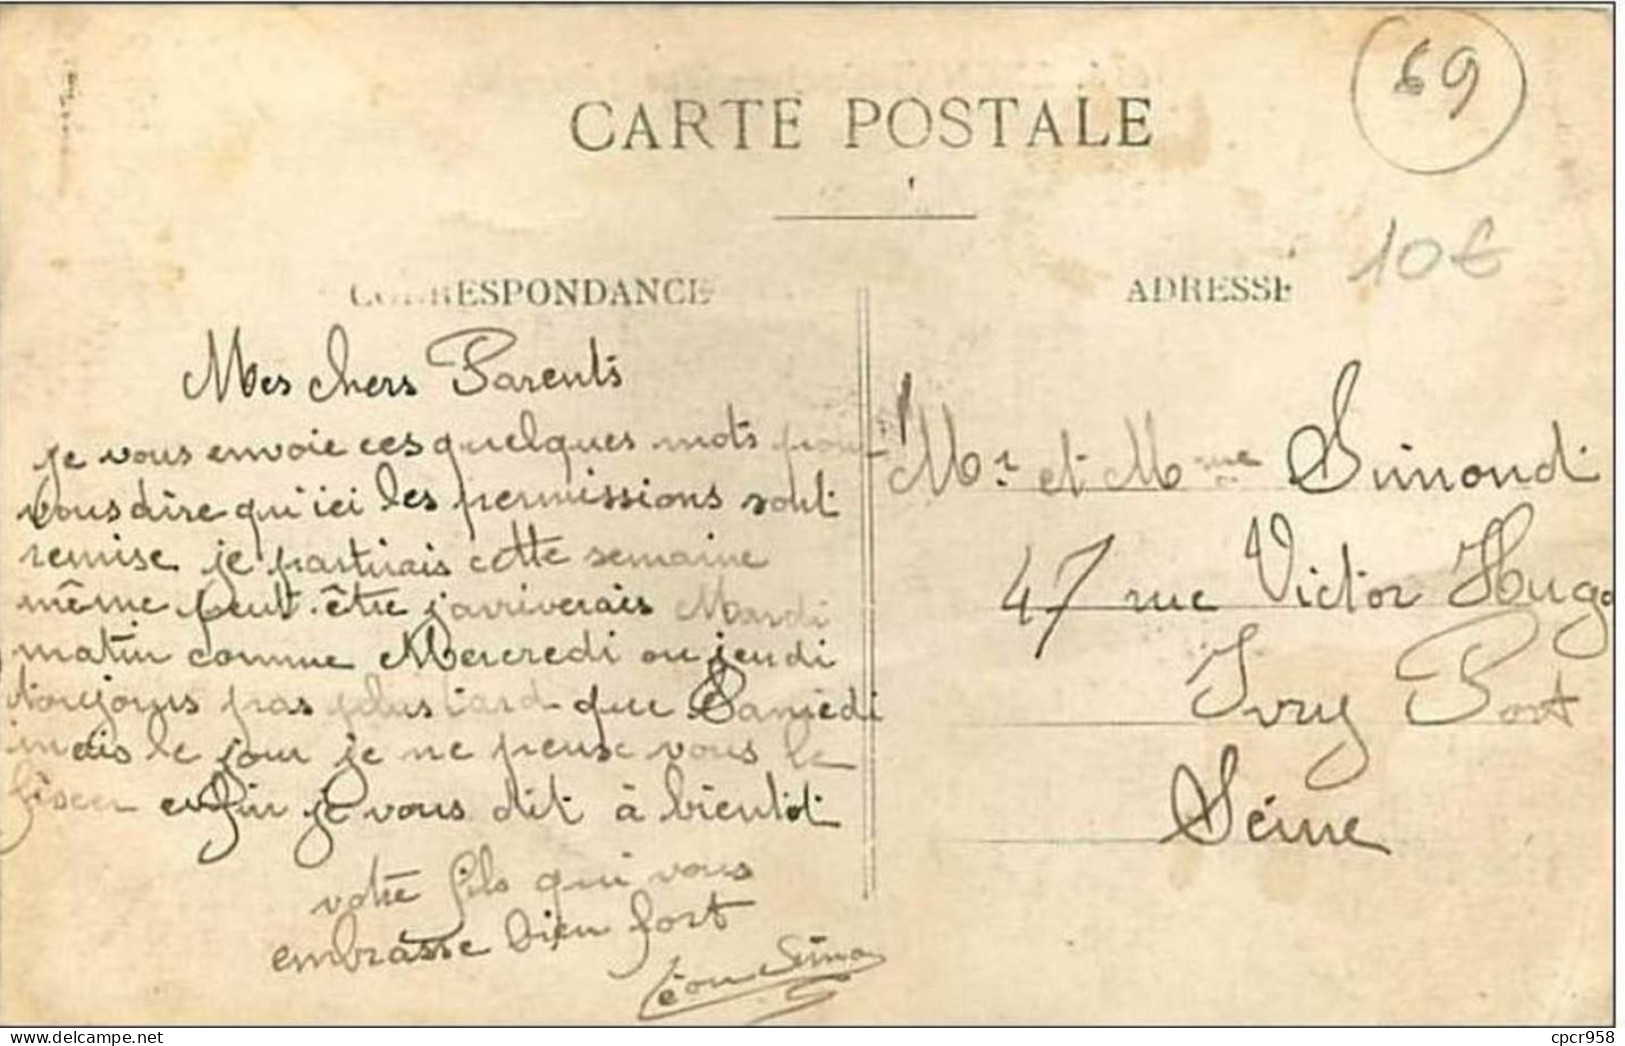 69
CARTE POSTALE
10€
CORRESPONDANCE
ADRESSE
Mes chers Parents
je vous envoie ces quelques mots pour
vous dire qu'ici les permissions sont
remise je partirais cette semaine
même peut-être j'arriverais Mardi
matin comme Mercredi ou jeudi
toujours pas plus tard que Samedi
mais le jour je ne peuse vous le
fiscer enfin je vous dit à bientôt
votre fils qui vous
embrasse bien fort
Léon Simon
Mr et Mme Simond
47 rue Victor Hugo
Ivry Port
Seine
cpcr958